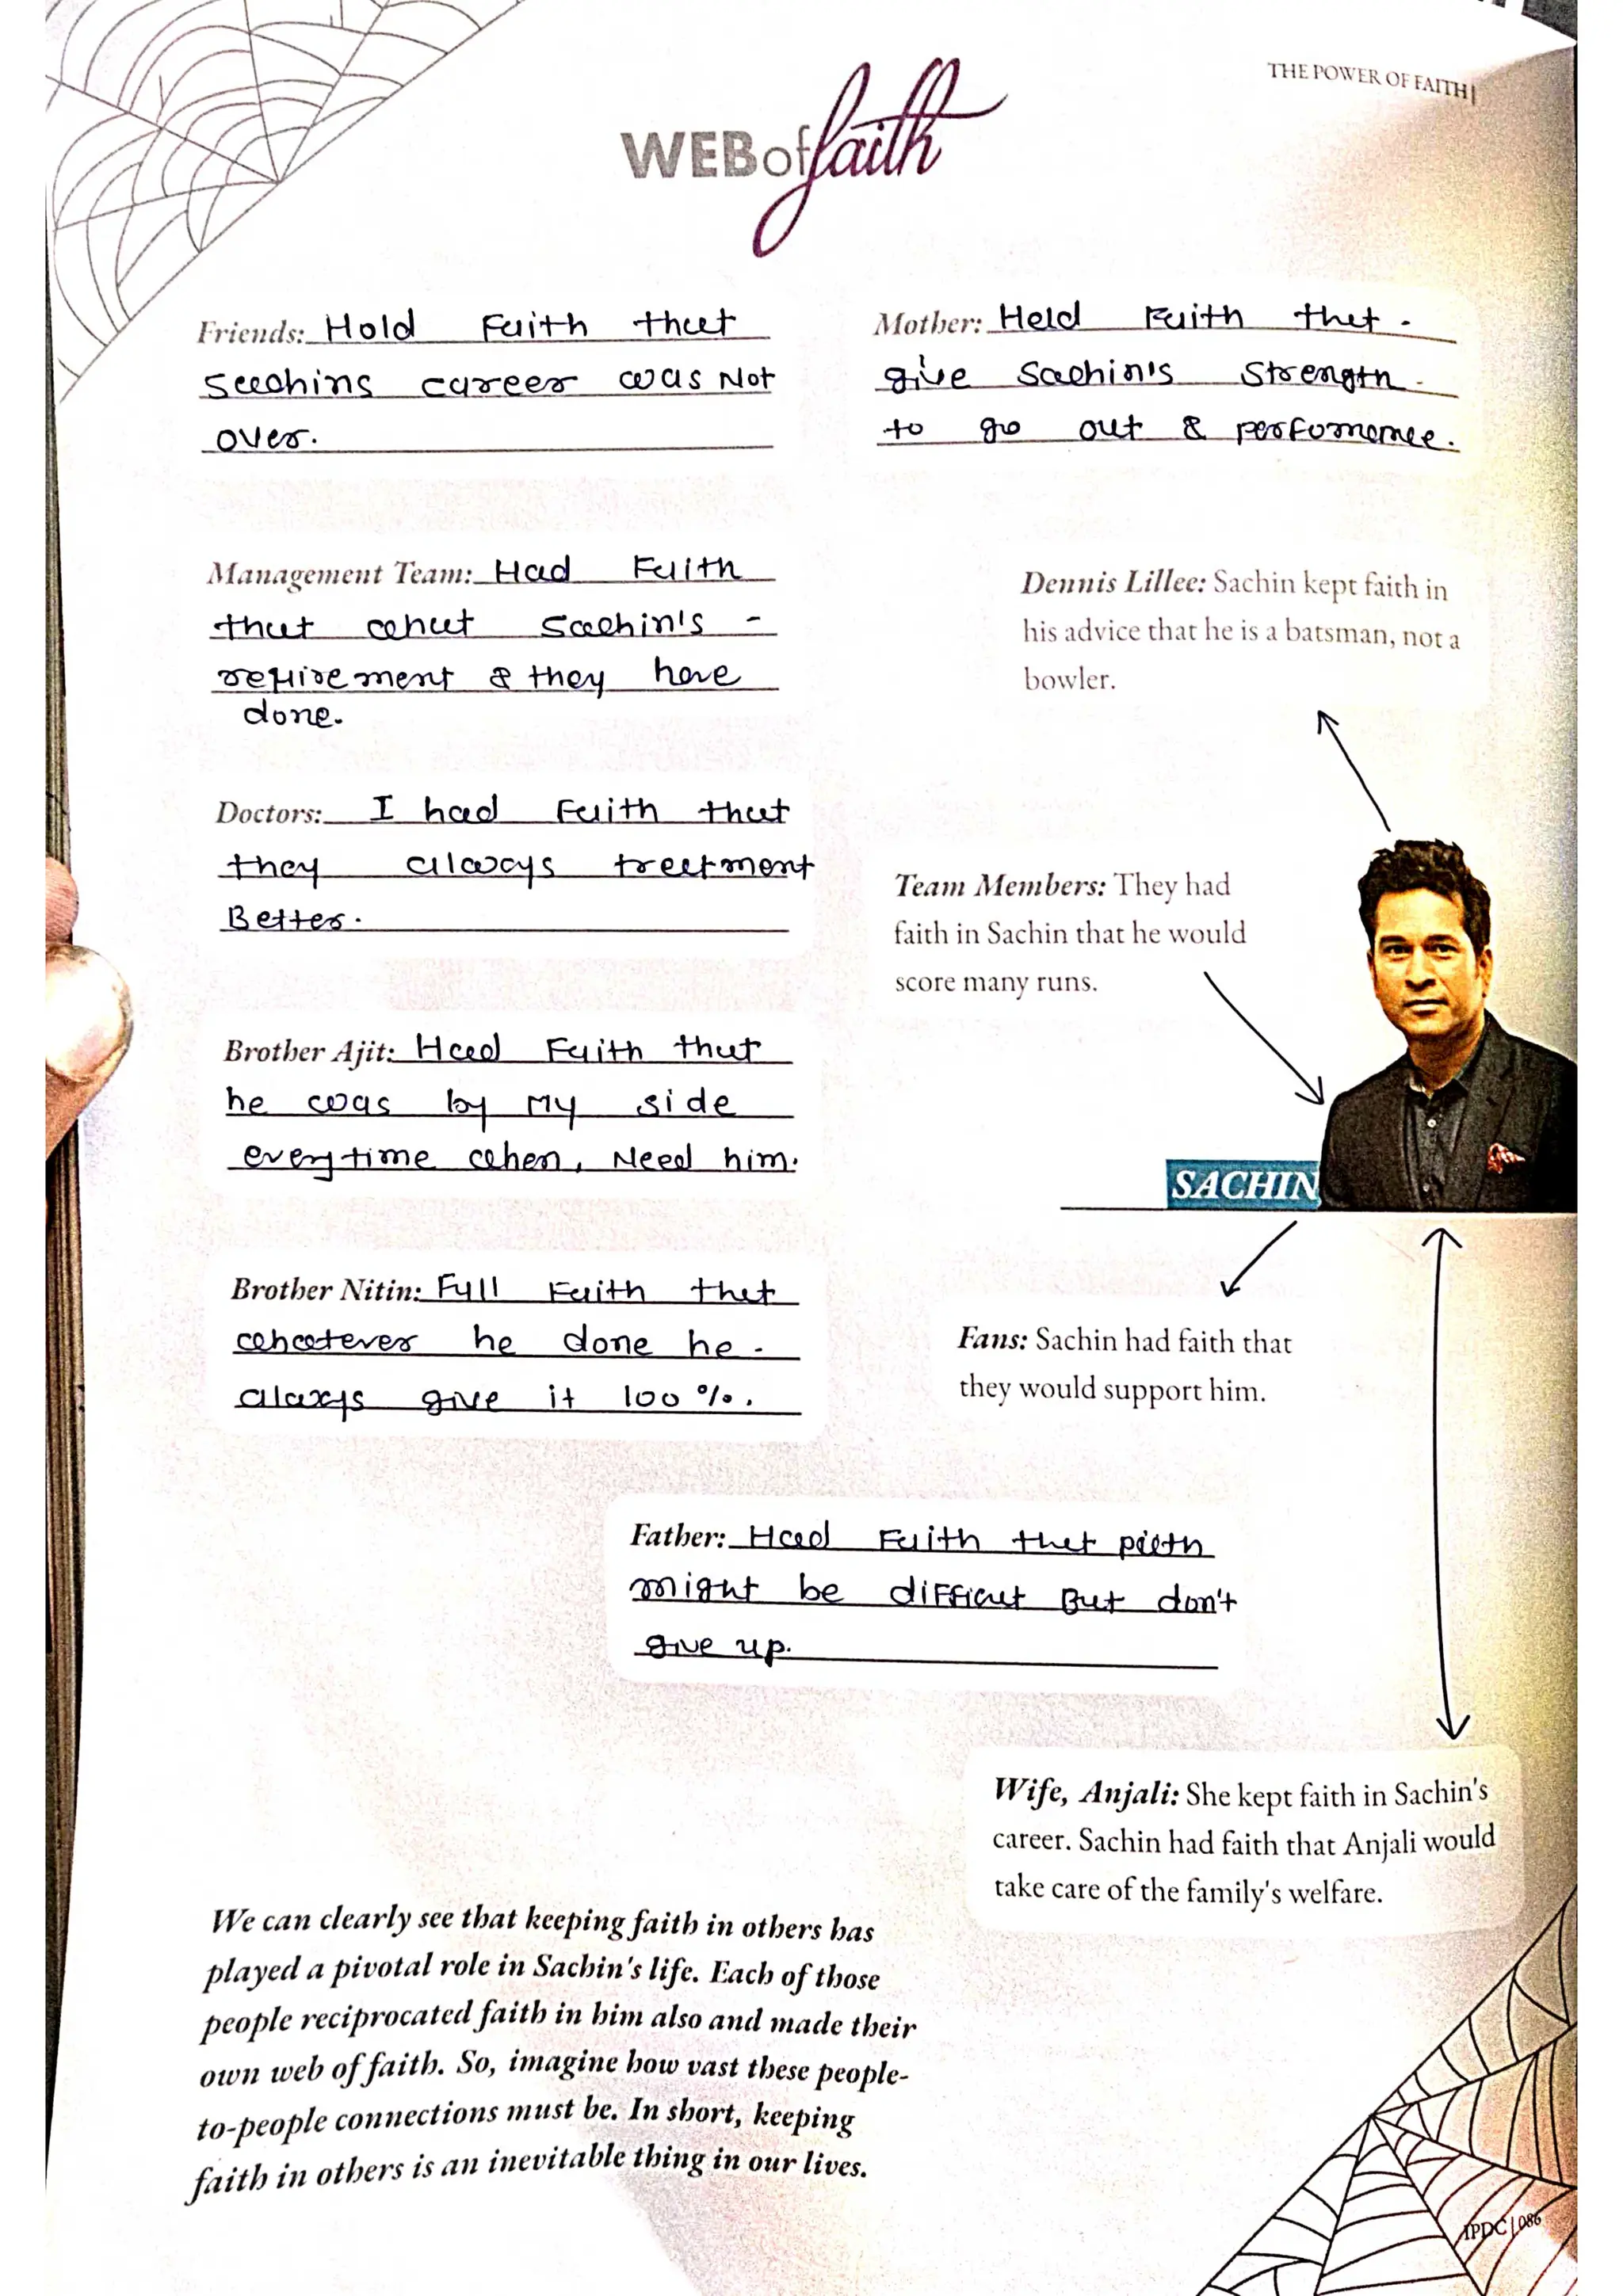 THE POWER OF FAITH|
WEB of faith
Friends: Hold Faith that
Sachins career was Not
over.
Mother: Held Faith that.
give Sachin's Strength
to go out & perfomance.
Management Team: Had Faith
that what Sachin's -
requirement & they have
done.
Dennis Lillee: Sachin kept faith in
his advice that he is a batsman, not a
bowler.
Doctors: I had Faith that
they always treatment
Better.
Team Members: They had
faith in Sachin that he would
score many runs.
Brother Ajit: Had Faith that
he was by My side
everytime when, Need him.
SACHIN
Brother Nitin: Full Faith that
whatever he done he -
always give it 100%.
Fans: Sachin had faith that
they would support him.
Father: Had Faith that path
might be difficult But don't
give up.
Wife, Anjali: She kept faith in Sachin's
career. Sachin had faith that Anjali would
take care of the family's welfare.
We can clearly see that keeping faith in others has
played a pivotal role in Sachin's life. Each of those
people reciprocated faith in him also and made their
own web of faith. So, imagine how vast these people-
to-people connections must be. In short, keeping
faith in others is an inevitable thing in our lives.
IPDC | 086